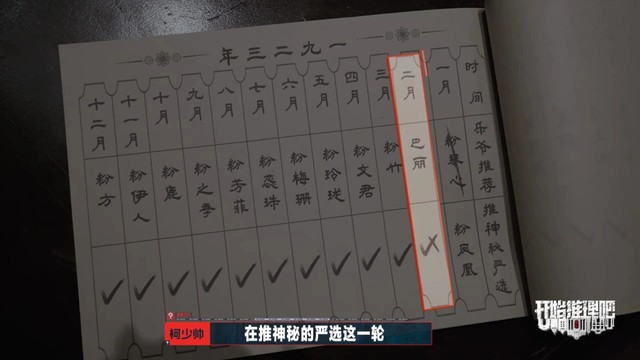 一九二三年
时间 乐爷推荐 推神秘严选
一月 粉心 粉凤凰
二月 巴丽 ✗
三月 粉竹 ✓
四月 粉文君 ✓
五月 粉玲珑 ✓
六月 粉梅珊 ✓
七月 粉蕊珠 ✓
八月 粉芳菲 ✓
九月 粉之季 ✓
十月 粉鹿 ✓
十一月 粉伊人 ✓
十二月 粉方 ✓
开始推理吧
柯少帅 在推神秘的严选这一轮